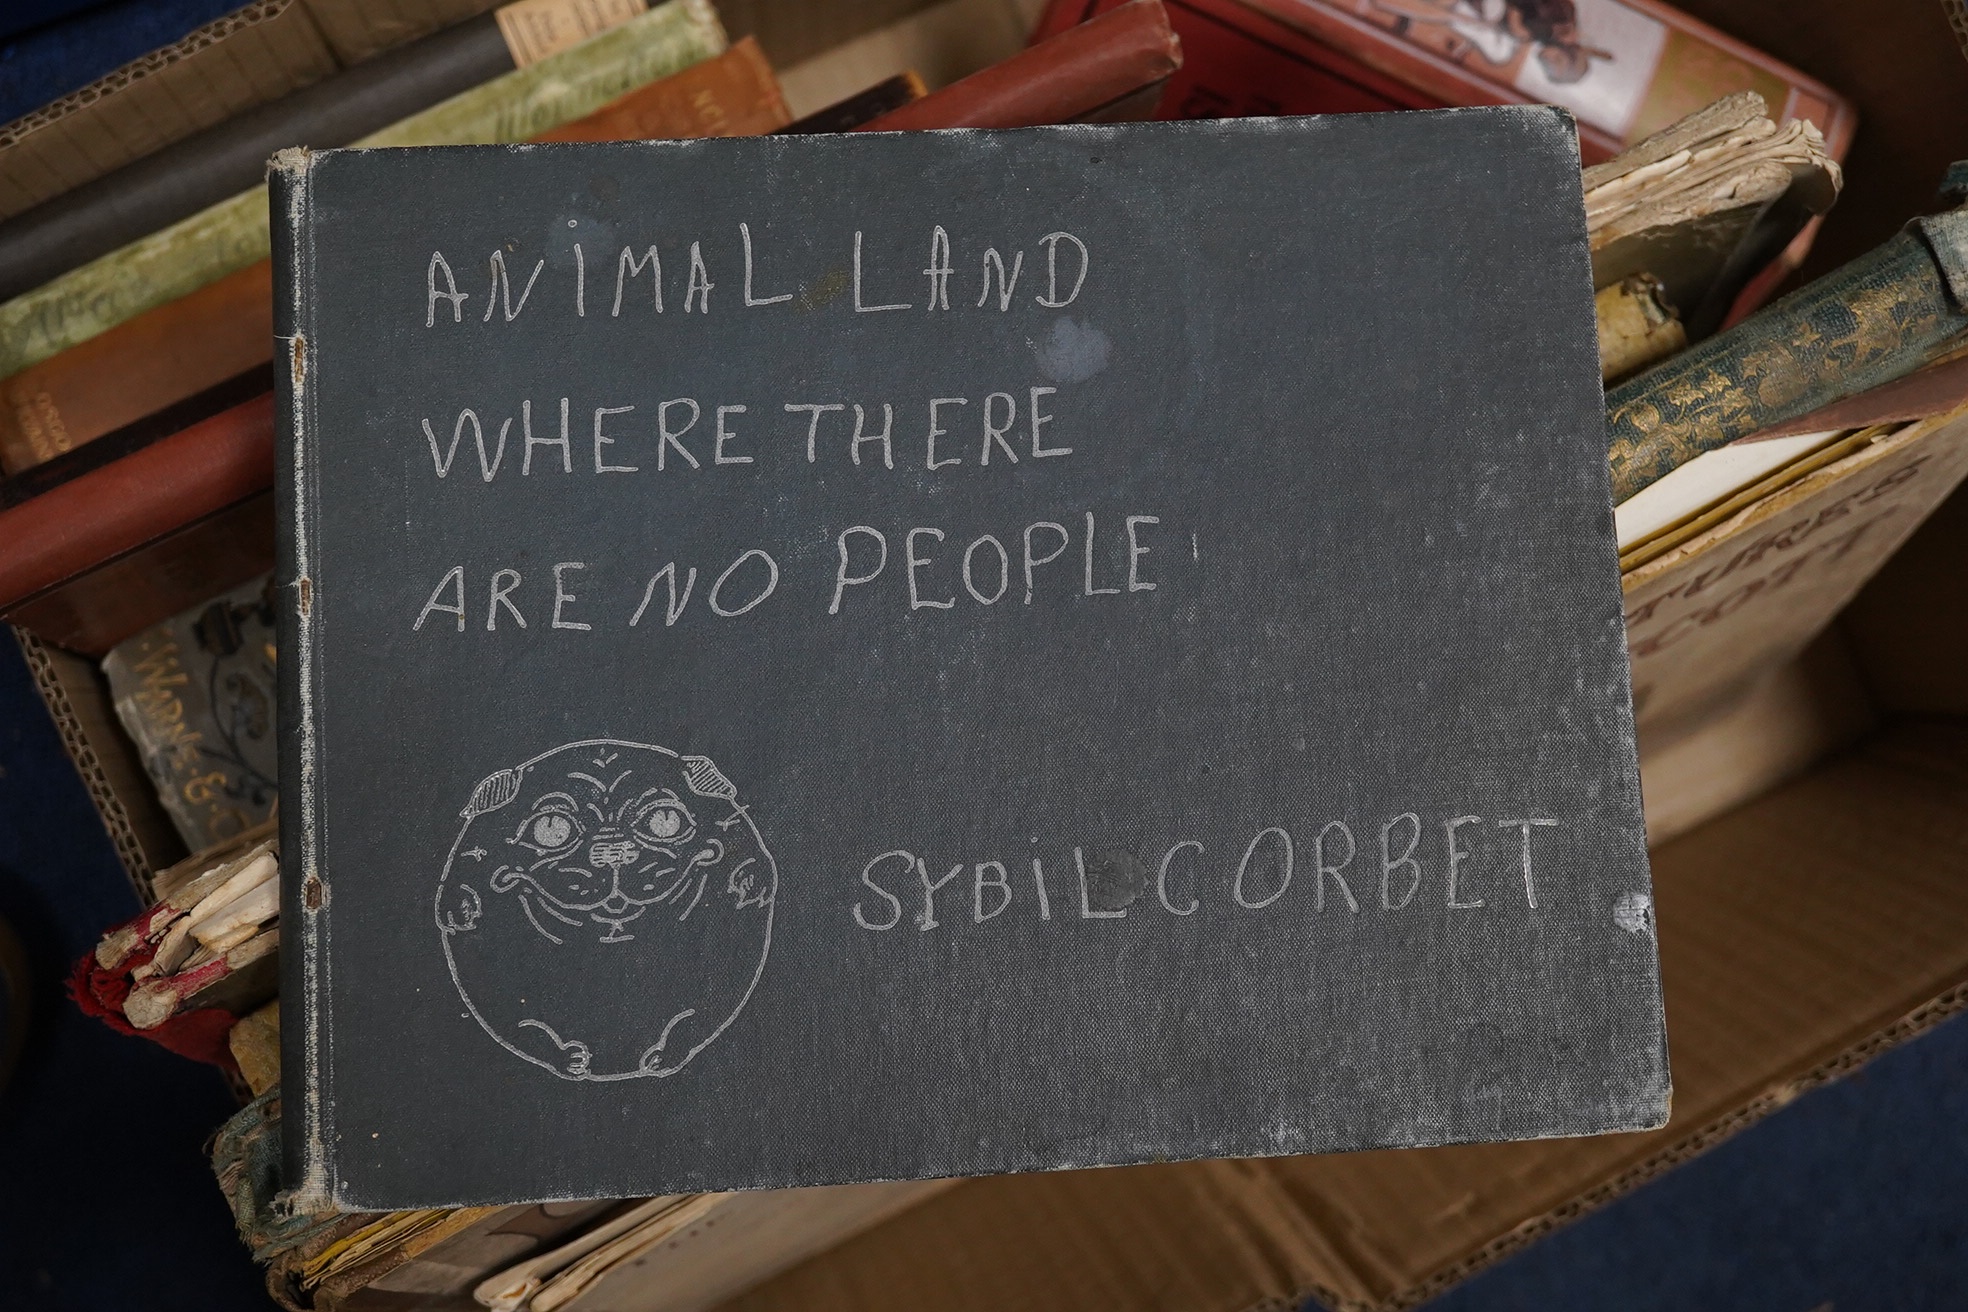 ANiMAL LAND
WHERE THERE
ARE NO PEOPLE
SYBiL CORBET
WARNE & Co